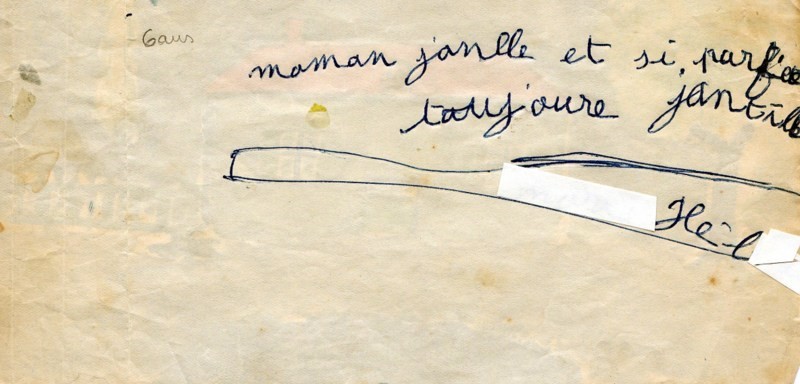 6 ans
moman janlle et si, parfee
taujoure jantill
Hé-l